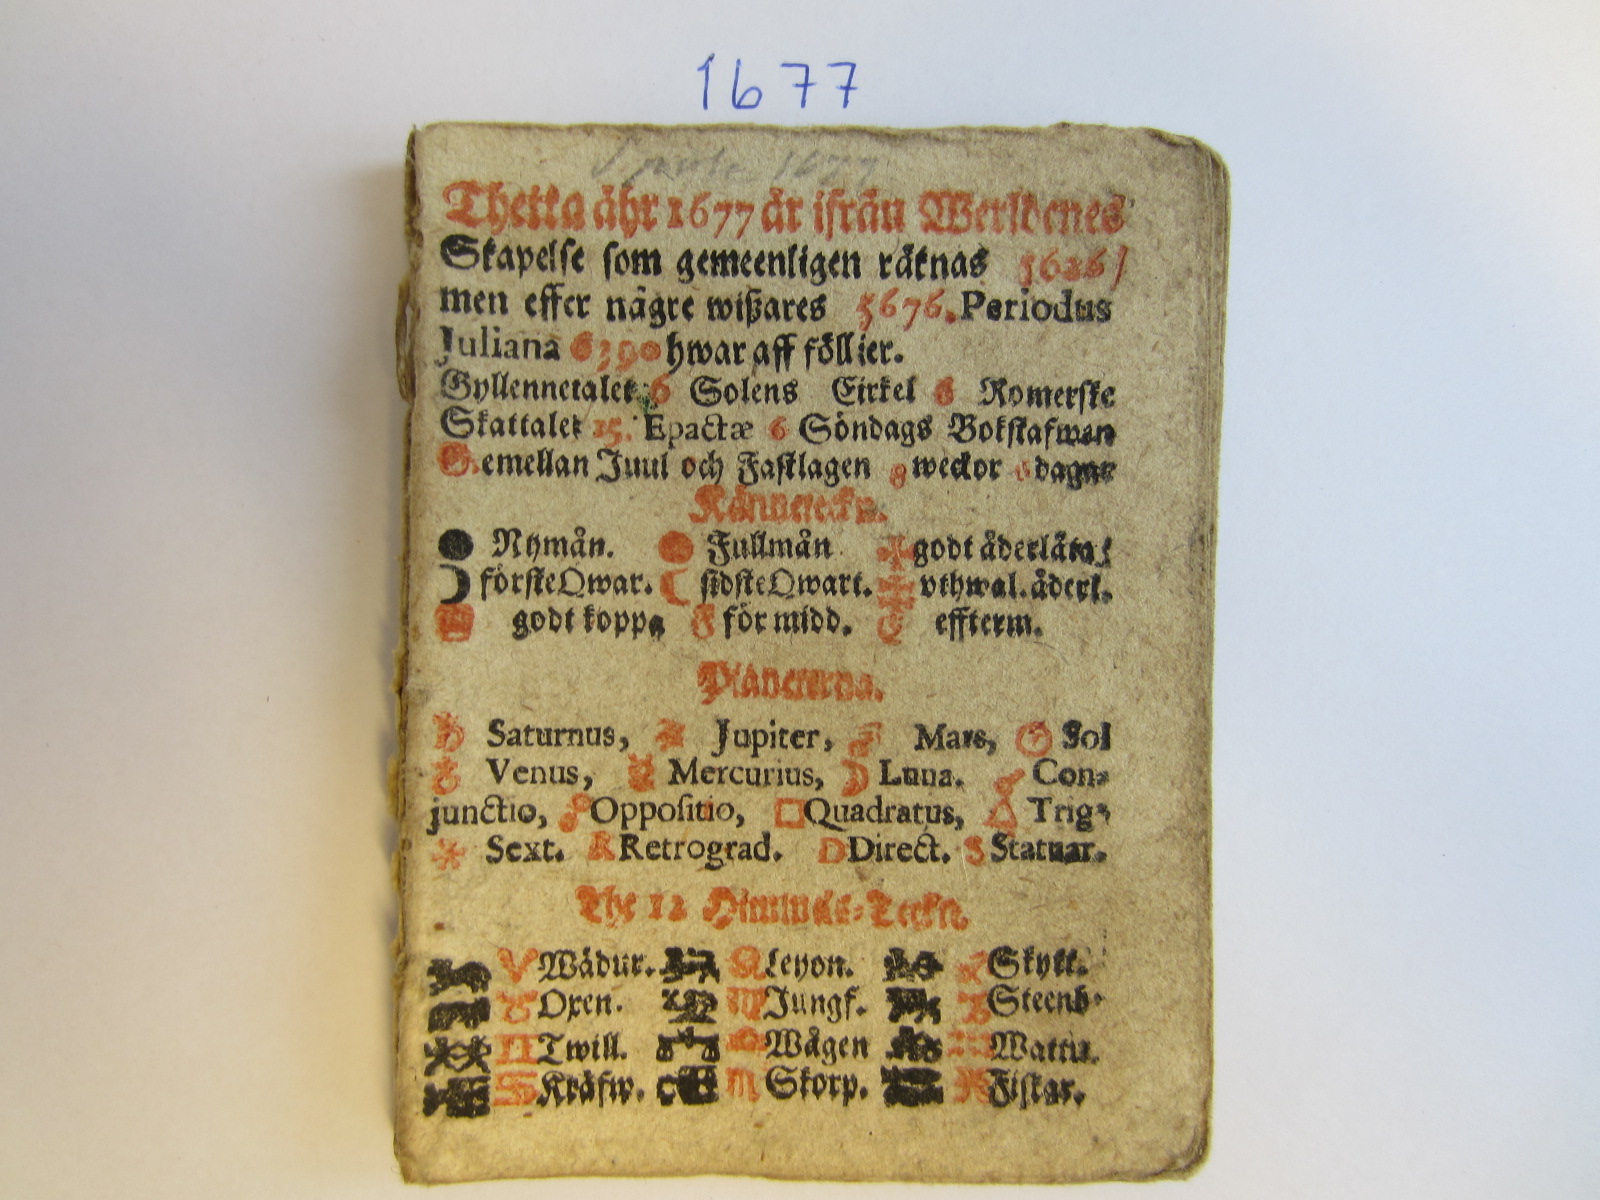 1677
1677
Thetta åhr 1677 är ifrån Werldenes
Skapelse som gemeenligen räknas 5626/
men effter någre wißares 5676. Periodus
Juliana 6390 hwar aff föllier.
Gyllennetalet 6 Solens Cirkel 6 Romerske
Skattalet 15. Epactæ 6 Söndags Bokstafwen
G. emellan Juul och Fastlagen 8 weckor dagar
Känneteckn.
Nymån. Fullmån godt åderlåta/
förste Qwar. sidste Qwart. vthwal. åderl.
godt koppa F för midd. E effterm.
Planeterna.
♄ Saturnus, ♃ Jupiter, ♂ Mars, ☉ Sol
♀ Venus, ☿ Mercurius, ☽ Luna. ☌ Con-
junctio, ☍ Oppositio, □ Quadratus, △ Trig-
⚹ Sext. R Retrograd. D Direct. S Statuar.
The 12 Himmels-Teckn.
♈ Wädur. ♌ Leyon. ♐ Skytt.
♉ Oxen. ♍ Jungf. ♑ Steenb.
♊ Twill. ♎ Wågen ♒ Wattu.
♋ Kräfw. ♏ Skorp. ♓ Fiskar.